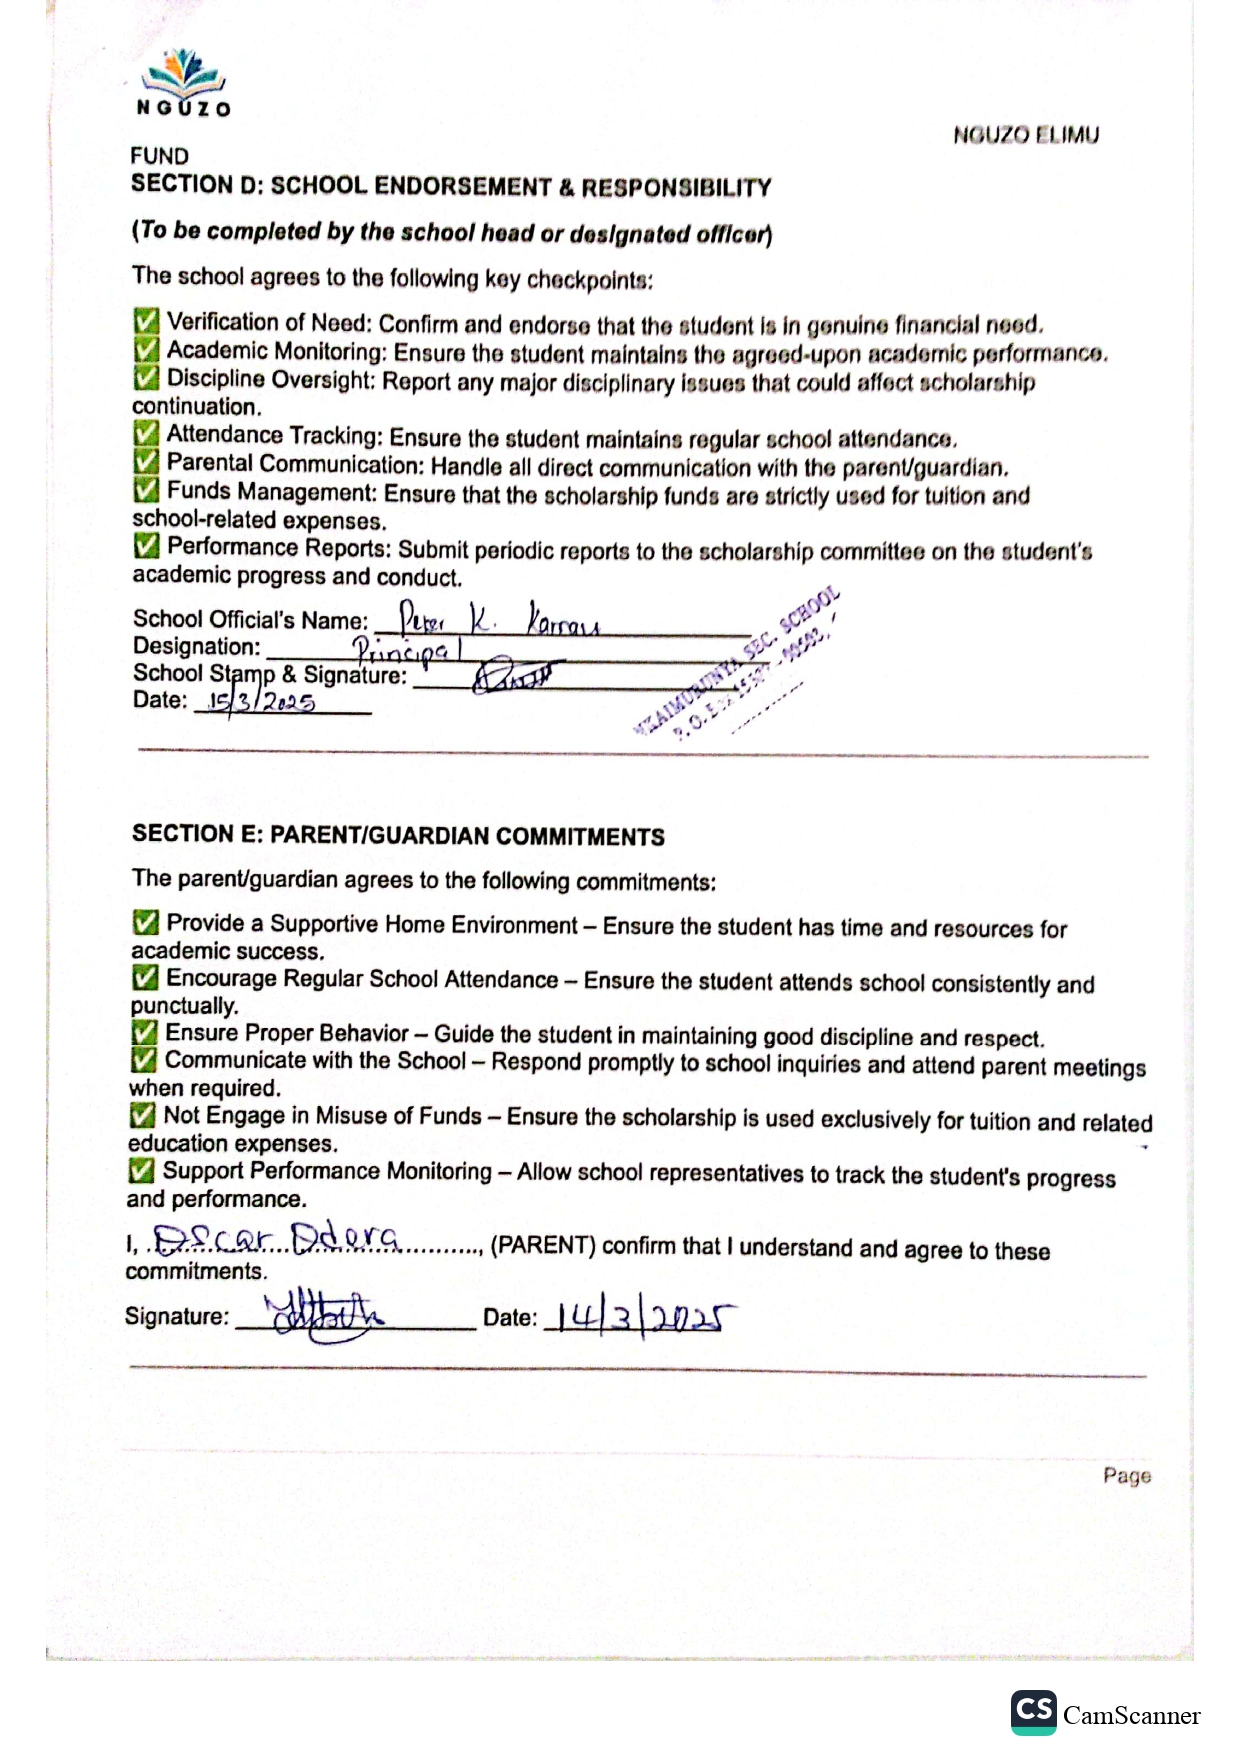 NGUZO
NGUZO ELIMU
FUND
SECTION D: SCHOOL ENDORSEMENT & RESPONSIBILITY
(To be completed by the school head or designated officer)
The school agrees to the following key checkpoints:
✅ Verification of Need: Confirm and endorse that the student is in genuine financial need.
✅ Academic Monitoring: Ensure the student maintains the agreed-upon academic performance.
✅ Discipline Oversight: Report any major disciplinary issues that could affect scholarship
continuation.
✅ Attendance Tracking: Ensure the student maintains regular school attendance.
✅ Parental Communication: Handle all direct communication with the parent/guardian.
✅ Funds Management: Ensure that the scholarship funds are strictly used for tuition and
school-related expenses.
✅ Performance Reports: Submit periodic reports to the scholarship committee on the student's
academic progress and conduct.
School Official's Name: Peter K.
Designation: Principal
School Stamp & Signature:
Date: 15/3/2025
SEC. SCHOOL
P.O.
SECTION E: PARENT/GUARDIAN COMMITMENTS
The parent/guardian agrees to the following commitments:
✅ Provide a Supportive Home Environment – Ensure the student has time and resources for
academic success.
✅ Encourage Regular School Attendance – Ensure the student attends school consistently and
punctually.
✅ Ensure Proper Behavior – Guide the student in maintaining good discipline and respect.
✅ Communicate with the School – Respond promptly to school inquiries and attend parent meetings
when required.
✅ Not Engage in Misuse of Funds – Ensure the scholarship is used exclusively for tuition and related
education expenses.
✅ Support Performance Monitoring – Allow school representatives to track the student's progress
and performance.
I, Oscar Odera, (PARENT) confirm that I understand and agree to these
commitments.
Signature: Date: 14/3/2025
Page
CS CamScanner